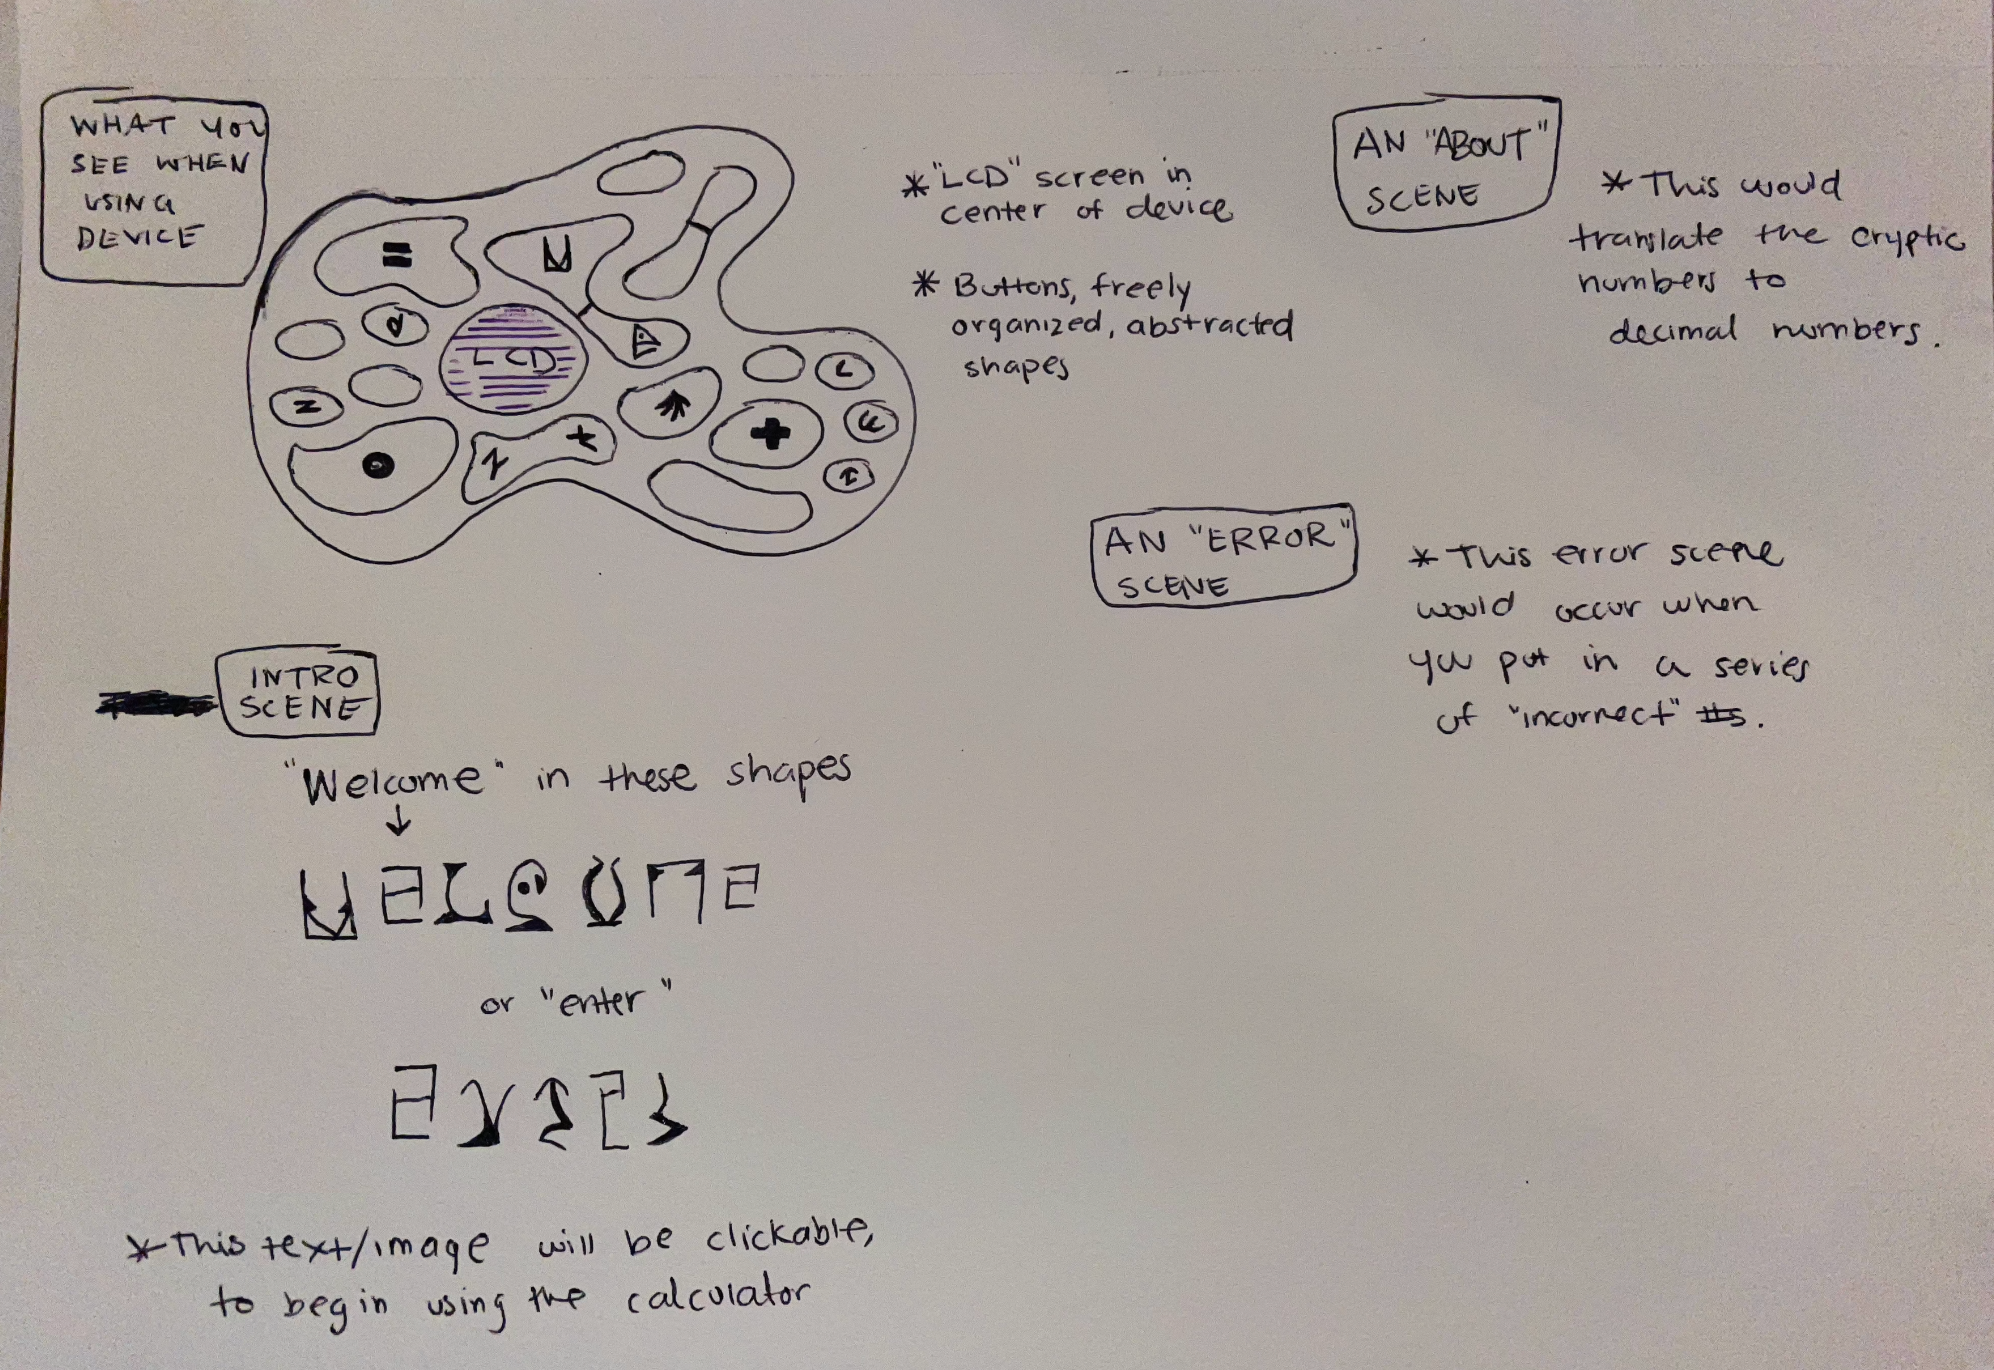 WHAT YOU
SEE WHEN
USING
DEVICE
=
LCD
+
* "LCD" screen in
center of device
* Buttons, freely
organized, abstracted
shapes
AN "ABOUT"
SCENE
* This would
translate the cryptic
numbers to
decimal numbers.
AN "ERROR"
SCENE
* This error scene
would occur when
you put in a series
of "incorrect" #s.
INTRO
SCENE
"Welcome" in these shapes
↓
WELCOME
or "enter"
ENTER
* This text/image will be clickable,
to begin using the calculator